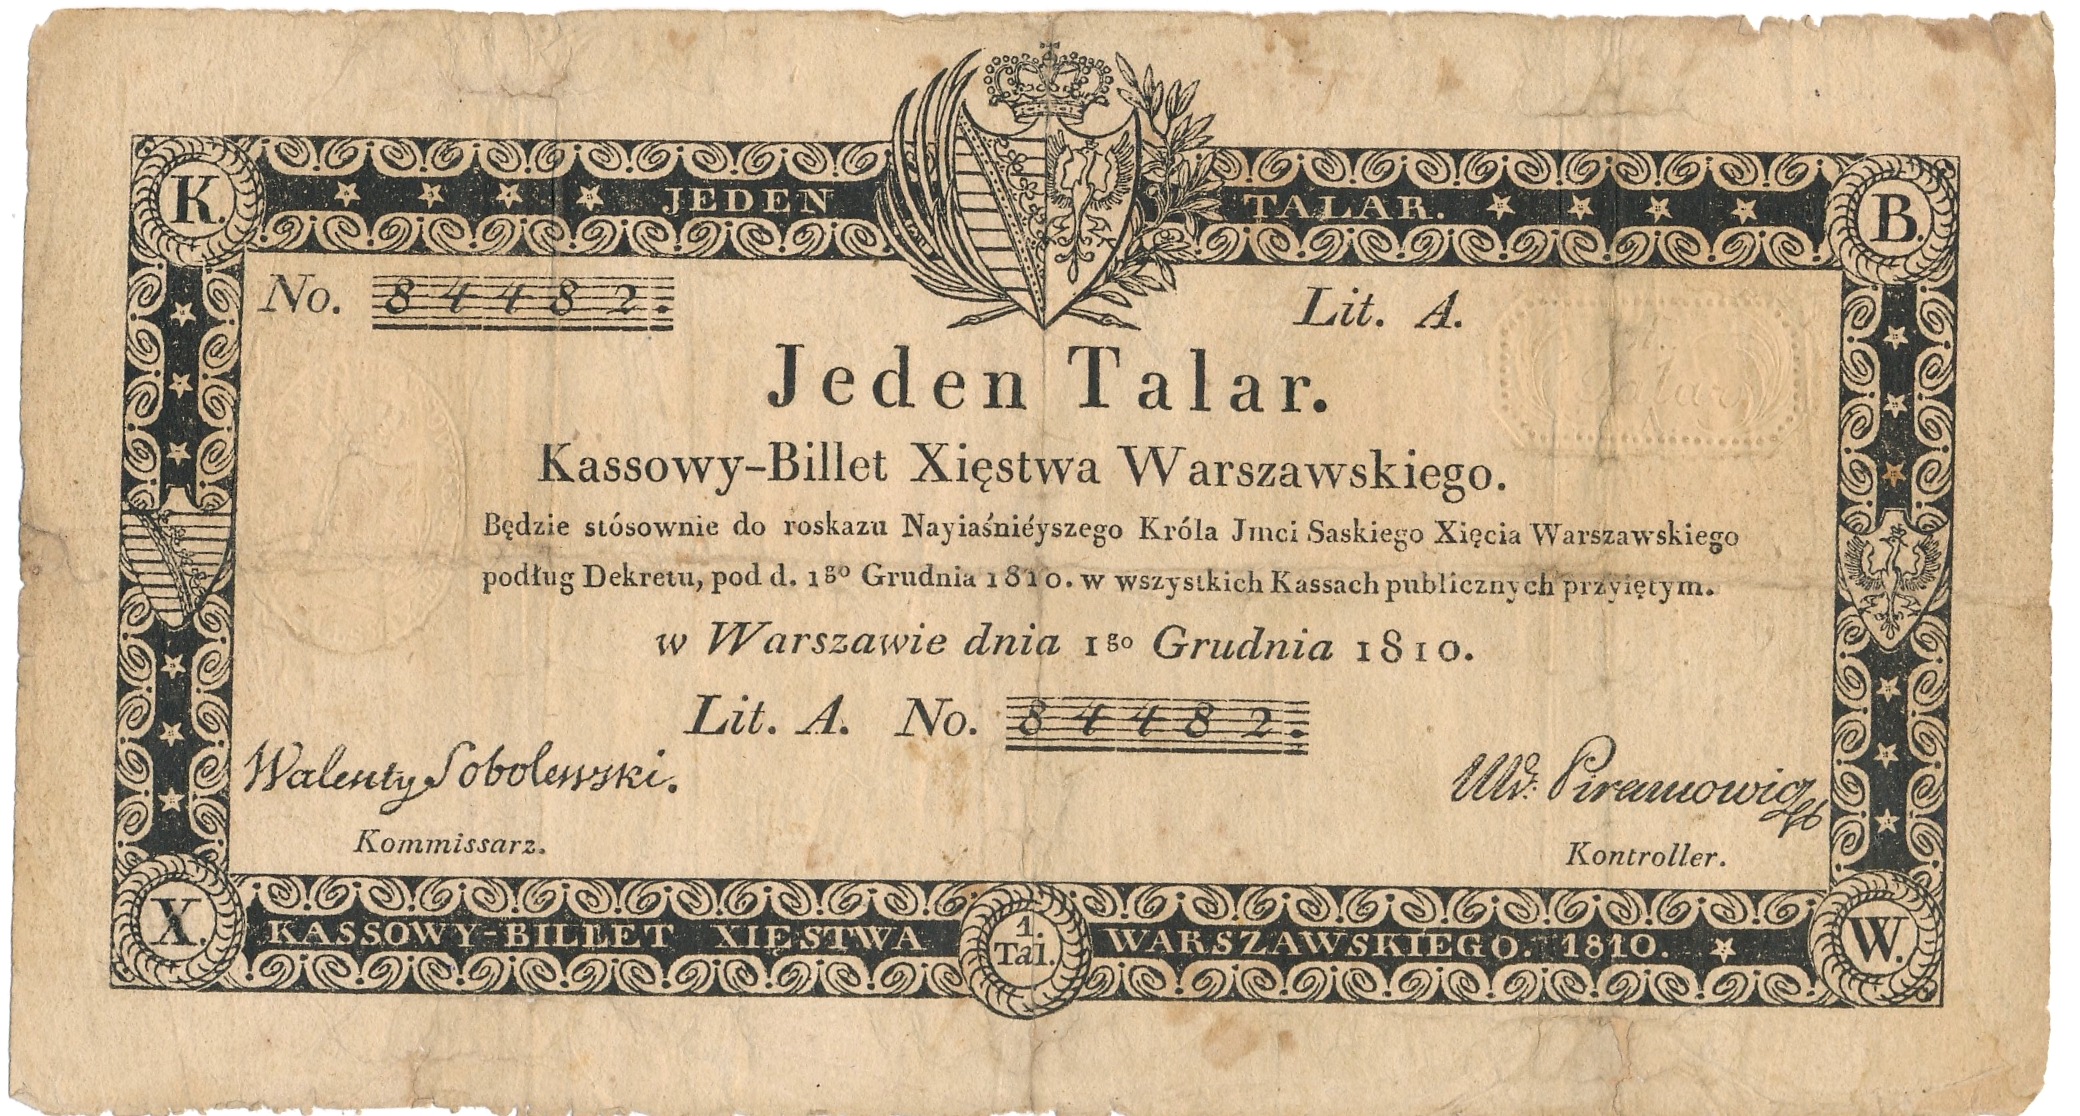 K.
JEDEN TALAR.
B.
No. 84482.
Lit. A.
Talar
A.
Jeden Talar.
Kassowy-Billet Xięstwa Warszawskiego.
Będzie stósownie do roskazu Nayiaśniéyszego Króla Jmci Saskiego Xięcia Warszawskiego
podług Dekretu, pod d. 1go Grudnia 1810. w wszystkich Kassach publicznych przyiętym.
w Warszawie dnia 1go Grudnia 1810.
Lit. A. No. 84482.
Walenty Sobolewski.
Piramowicz
Kommissarz.
Kontroller.
X.
KASSOWY-BILLET XIĘSTWA
1.
Tal.
WARSZAWSKIEGO. 1810.
W.